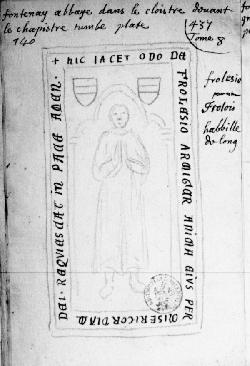 fontenay abbaye dans le cloistre devant
le chapistre tumbe plate
140
437
Tome 8
+ HIC IACET ODO DE
FROLESIO ARMIGER ANIMA EIVS PER
MISERICORDIAM
DEI REQVIESCAT IN PACE AMEN
frolesio
Frolois
habille
de long